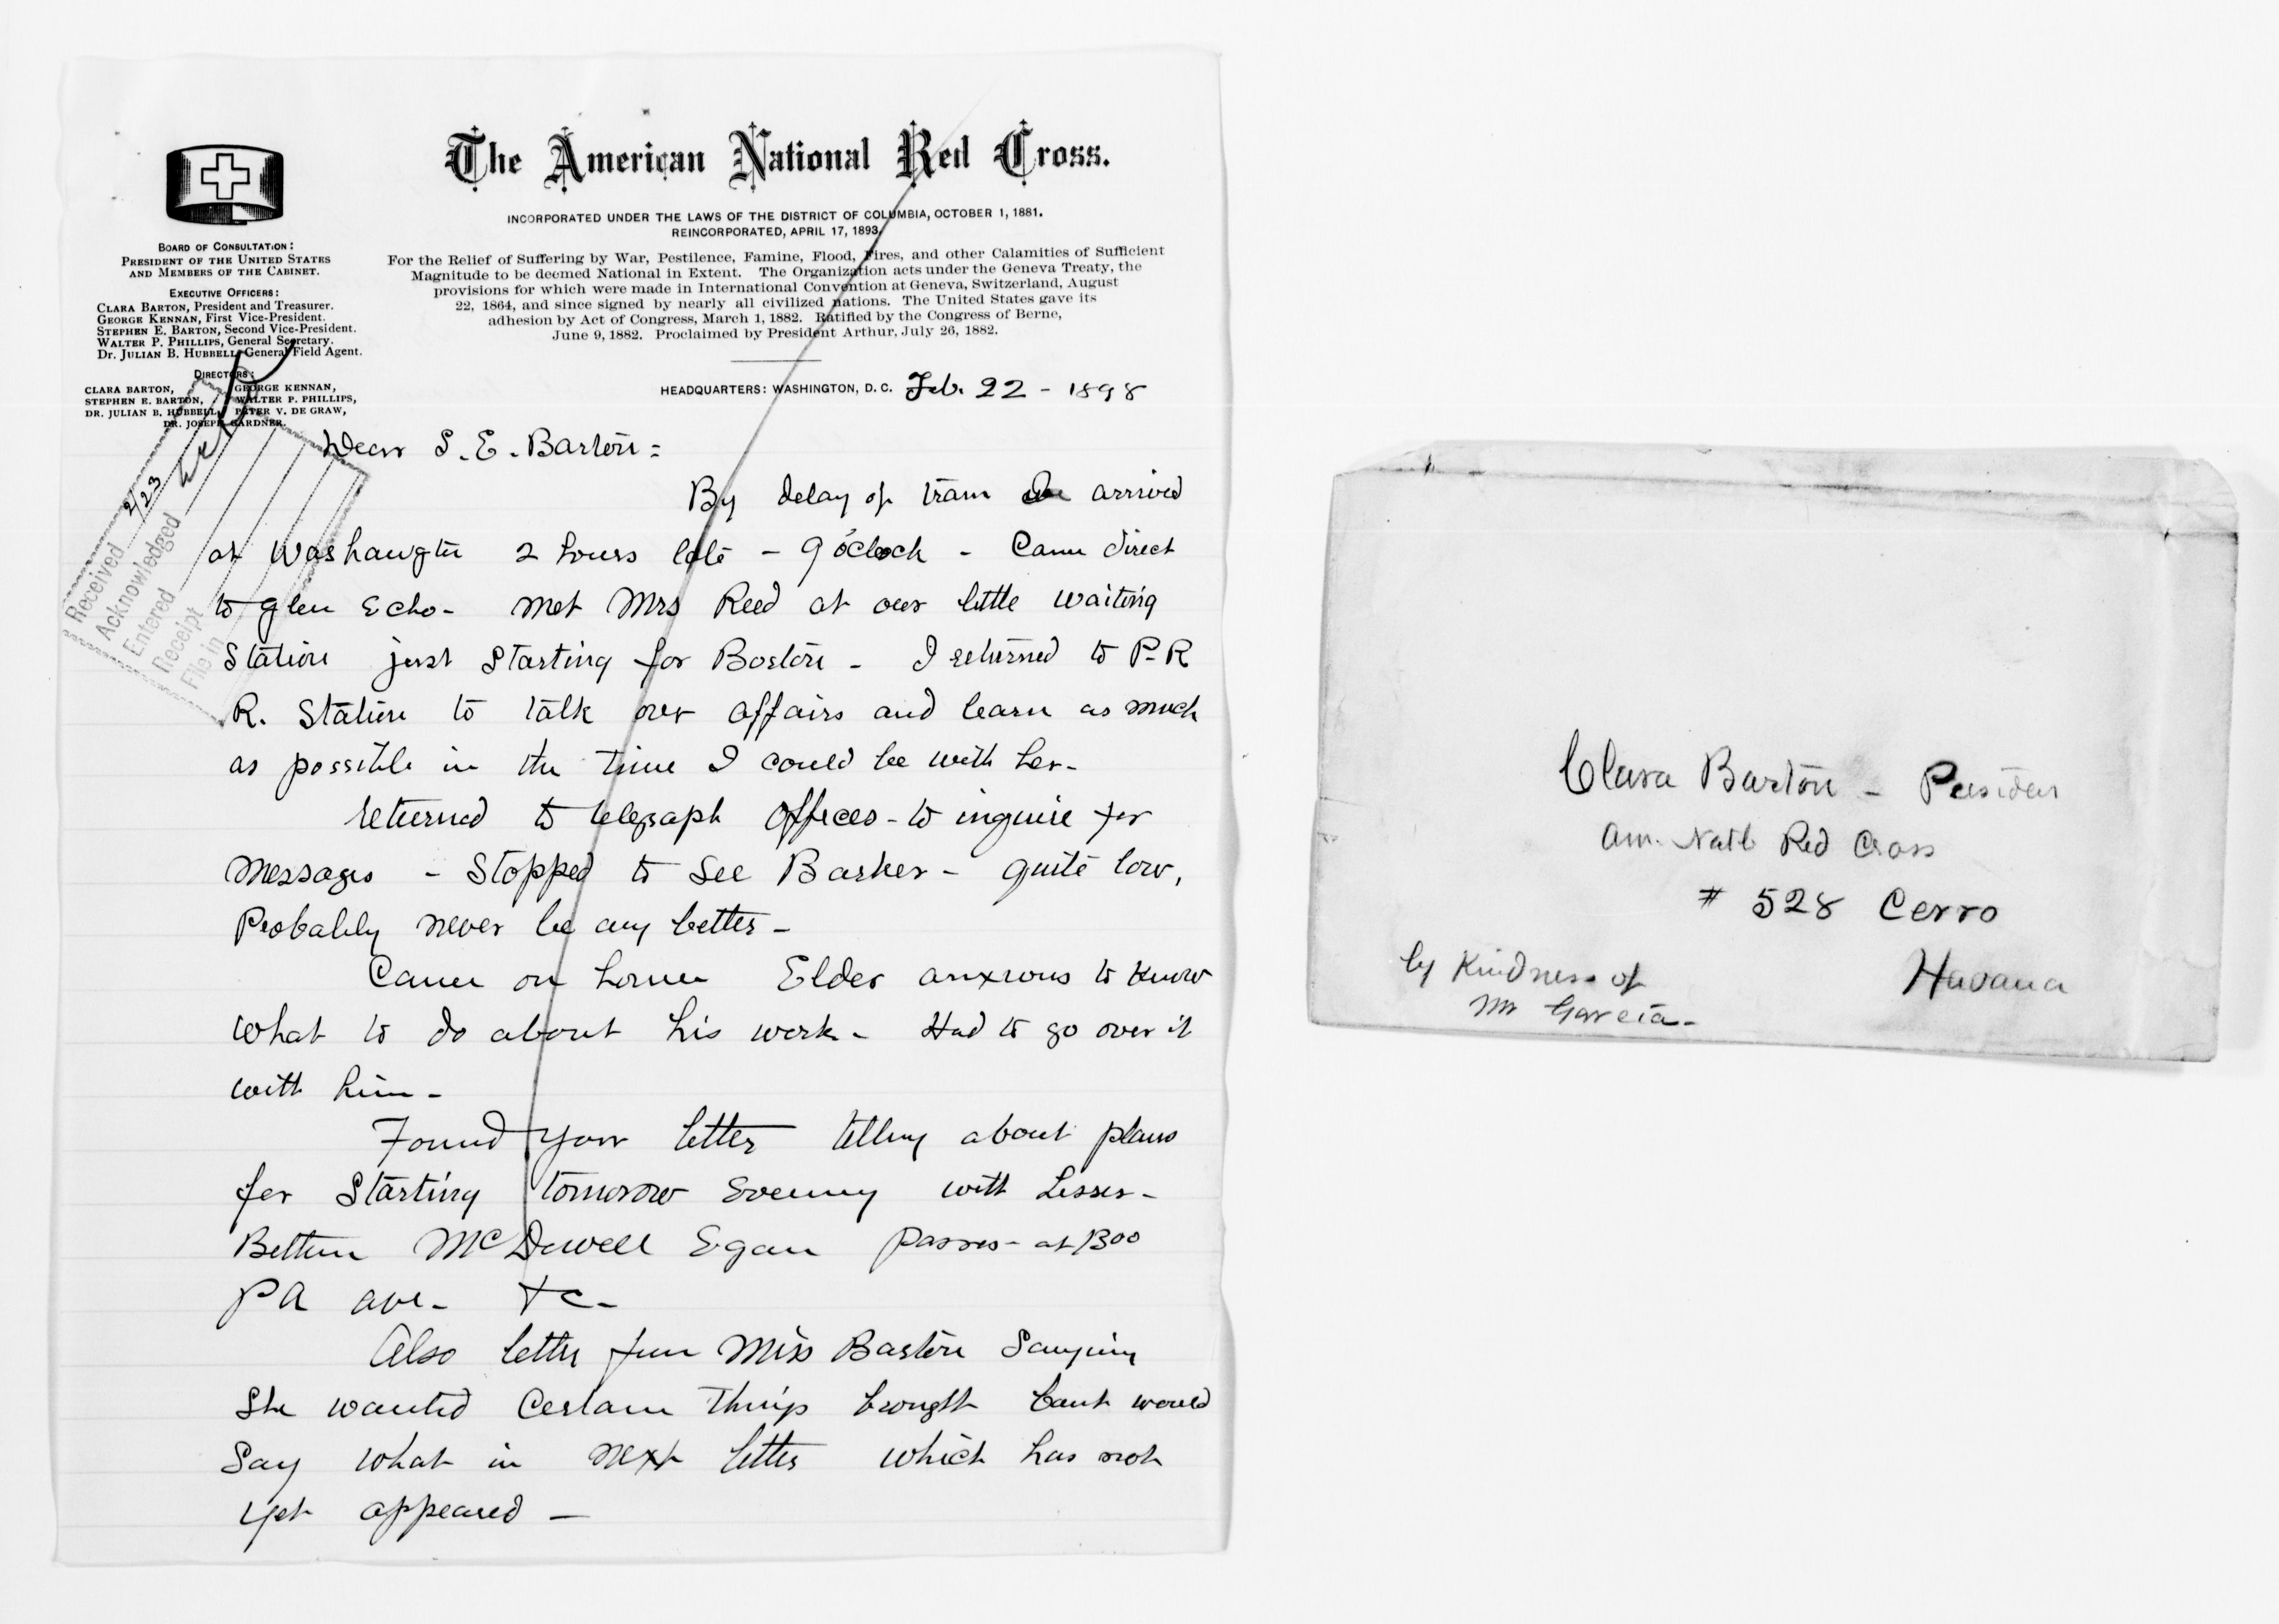 The American National Red Cross.
INCORPORATED UNDER THE LAWS OF THE DISTRICT OF COLUMBIA, OCTOBER 1, 1881.
REINCORPORATED, APRIL 17, 1893.
For the Relief of Suffering by War, Pestilence, Famine, Flood, Fires, and other Calamities of Sufficient
Magnitude to be deemed National in Extent. The Organization acts under the Geneva Treaty, the
provisions for which were made in International Convention at Geneva, Switzerland, August
22, 1864, and since signed by nearly all civilized nations. The United States gave its
adhesion by Act of Congress, March 1, 1882. Ratified by the Congress of Berne,
June 9, 1882. Proclaimed by President Arthur, July 26, 1882.
BOARD OF CONSULTATION:
PRESIDENT OF THE UNITED STATES
AND MEMBERS OF THE CABINET.
EXECUTIVE OFFICERS:
CLARA BARTON, President and Treasurer.
GEORGE KENNAN, First Vice-President.
STEPHEN E. BARTON, Second Vice-President.
WALTER P. PHILLIPS, General Secretary.
Dr. JULIAN B. HUBBELL, General Field Agent.
DIRECTORS:
CLARA BARTON, GEORGE KENNAN,
STEPHEN E. BARTON, WALTER P. PHILLIPS,
DR. JULIAN B. HUBBELL, PETER V. DE GRAW,
DR. JOSEPH GARDNER.
HEADQUARTERS: WASHINGTON, D. C. Feb. 22 - 1898
Received 2/23
Acknowledged
Entered
Receipt
File in
Dear S. E. Barton =
By delay of train arrived
at Washangtn 2 hours late - 9 o'clock - Came direct
to Glen Echo - met Mrs Reed at our little waiting
Station just starting for Boston - I returned to P. R
R. Station to talk over affairs and learn as much
as possible in the time I could be with her -
returned to telegraph offices - to inquire for
messages - Stopped to see Barker - quite low,
Probably never be any better -
Came on home Elder anxious to know
what to do about his work - Had to go over it
with him -
Found your letter telling about plans
for Starting tomorrow Evening with Lesser -
McDowell Egan passes - at 1300
PA ave - &c -
Also letter from Miss Barton Saying
She wanted Certain things brought but would
Say what in next letter which has not
yet appeared -
Clara Barton - President
Am. Natl Red Cross
# 528 Cerro
Havana
by Kindness of
Mr Garcia -